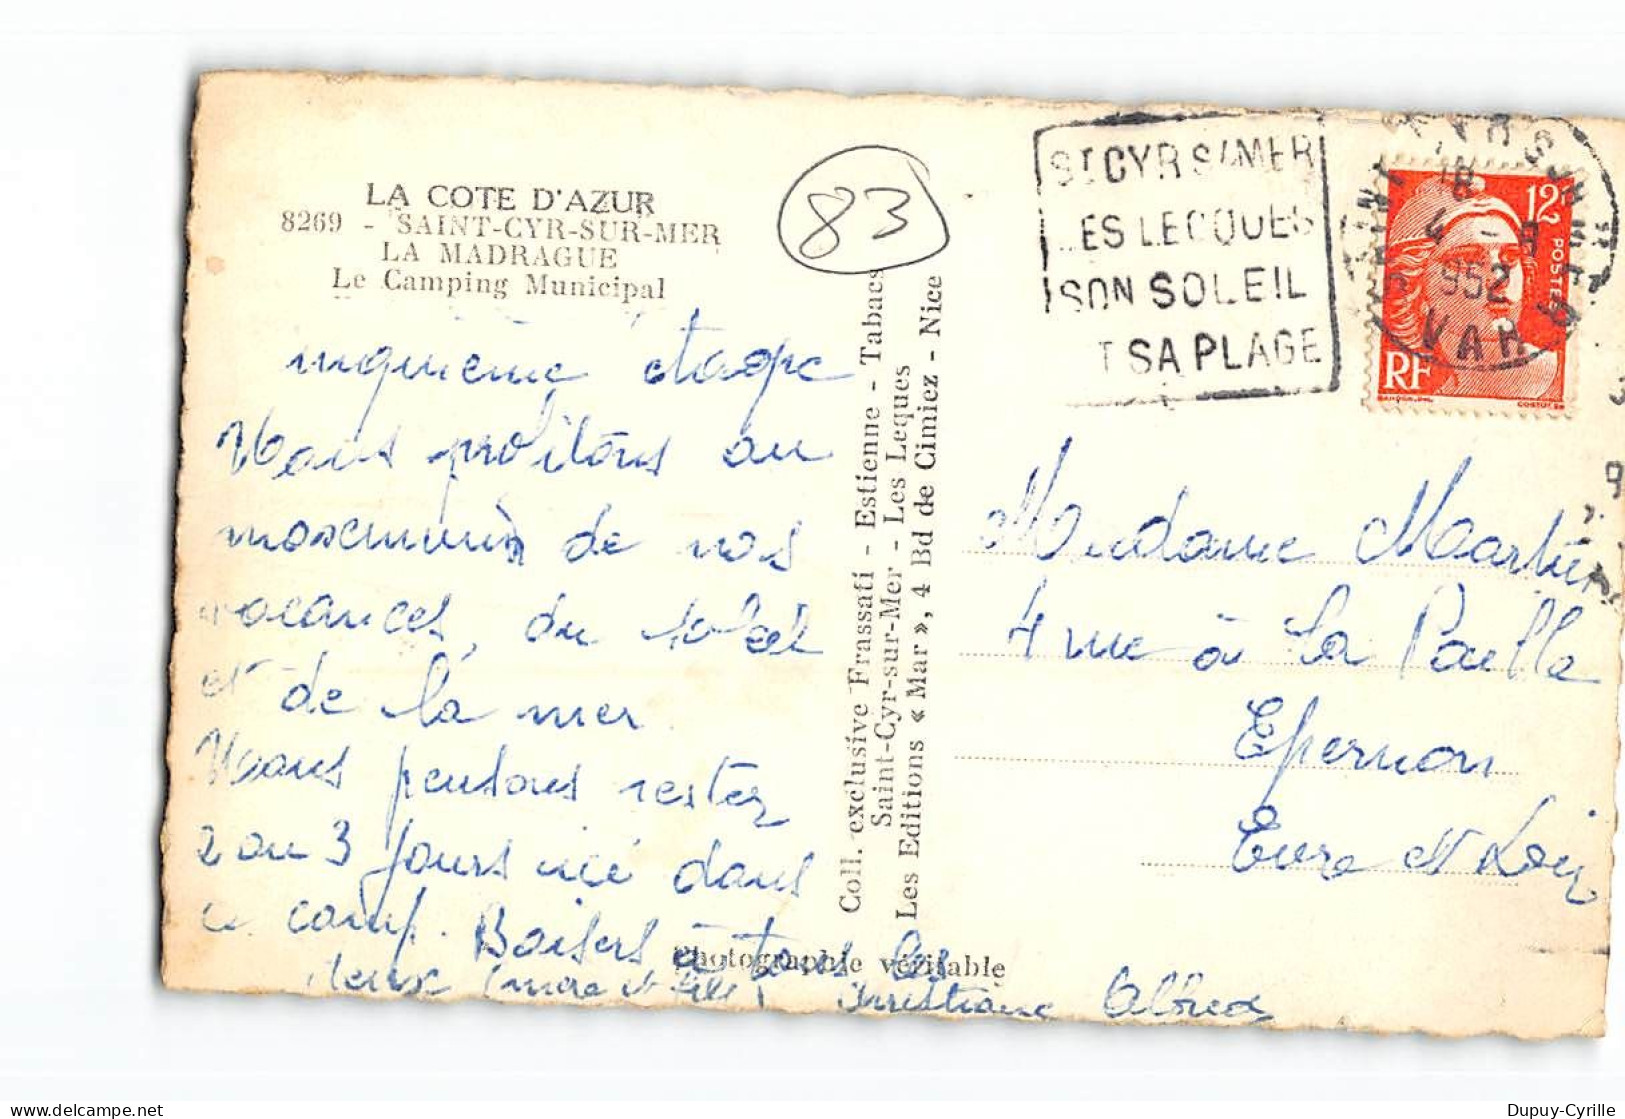 LA COTE D'AZUR
8269 - SAINT-CYR-SUR-MER
LA MADRAGUE
Le Camping Municipal
83
ST CYR S/MER
LES LECQUES
SON SOLEIL
T SA PLAGE
18
4 - 9
952
VAR
12F
POSTES
RF
inquième étape
Nous profitons au
maximum de nos
vacances, du soleil
et de la mer.
Nous pensons rester
2 ou 3 jours ici dans
ce camp. Baisers à tous les
deux (mère et fille) Christiane Alfred
Coll. exclusive Frassati - Estienne - Tabacs
Saint-Cyr-sur-Mer - Les Leques
Les Editions « Mar », 4 Bd de Cimiez - Nice
Photographie véritable
Madame Martin
4 rue à La Paille
Epernon
Eure et Loir
delcampe.net
Dupuy-Cyrille